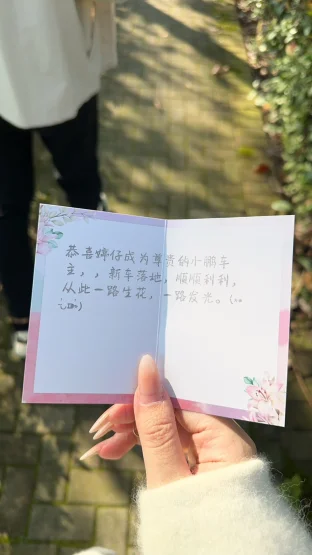 恭喜婷仔成为尊贵的小鹏车
主，，新车落地，顺顺利利，
从此一路生花，一路发光。(◦◦